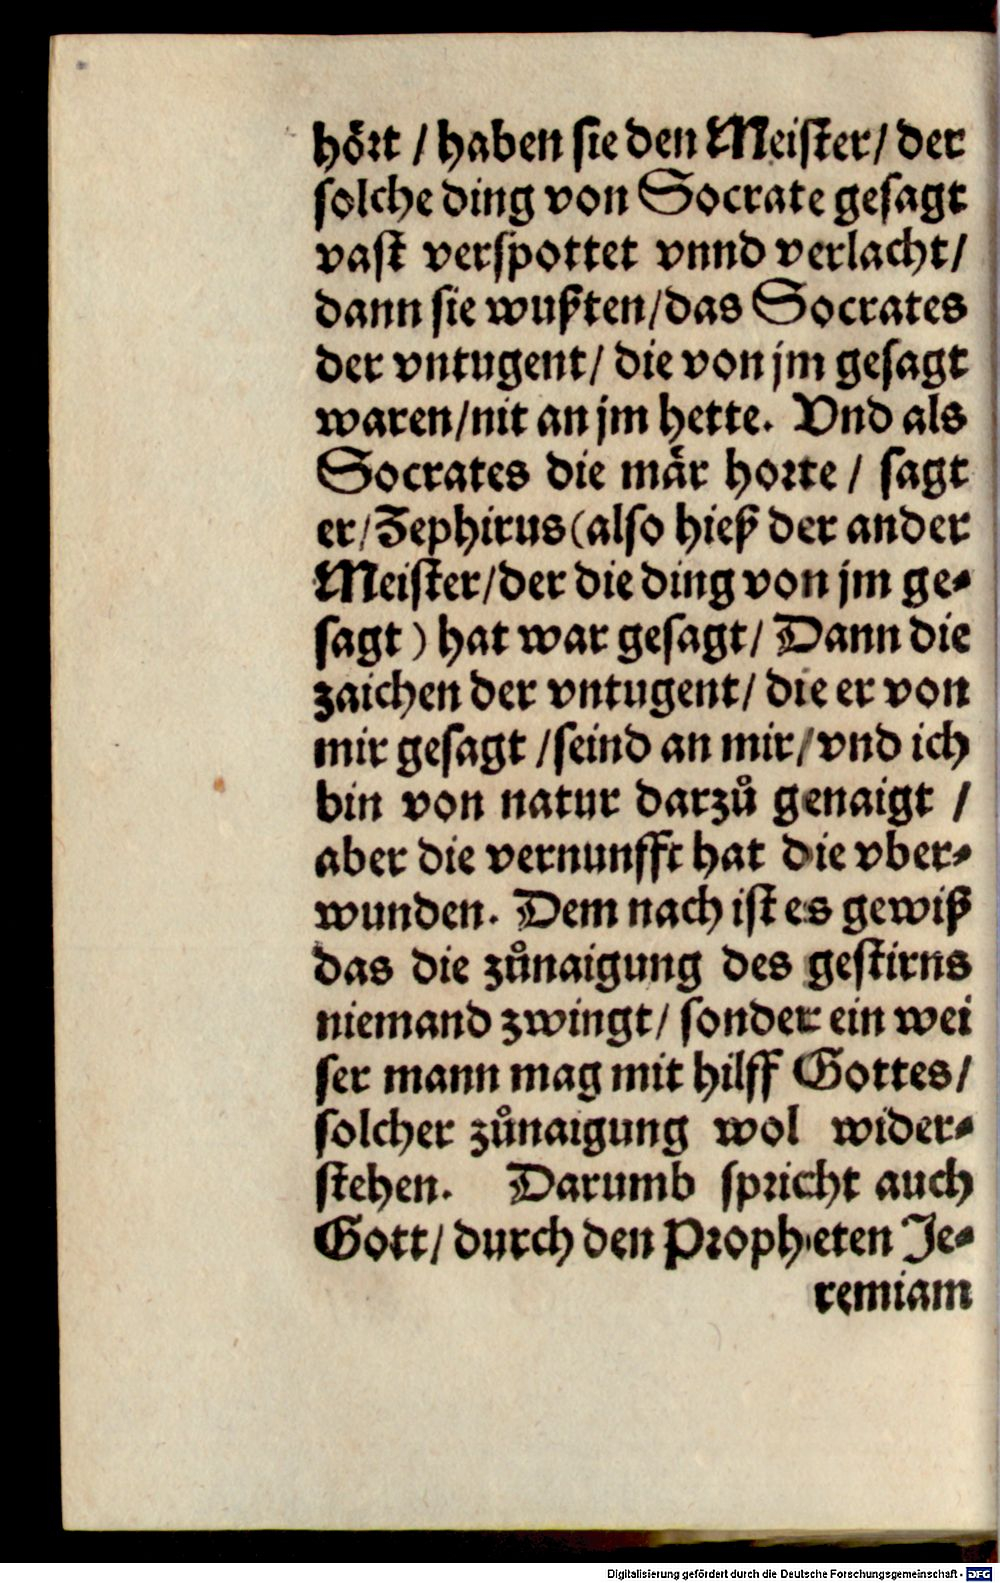 hoͤrt / haben sie den Meister / der
solche ding von Socrate gesagt
vast verspottet vnnd verlacht /
dann sie wußten / das Socrates
der vntugent / die von jm gesagt
waren / nit an jm hette. Vnd als
Socrates die maͤr horte / sagt
er / Zephirus (also hieß der ander
Meister / der die ding von jm ge-
sagt) hat war gesagt / Dann die
zaichen der vntugent / die er von
mir gesagt / seind an mir / vnd ich
bin von natur darzů genaigt /
aber die vernunfft hat die vber-
wunden. Dem nach ist es gewiß
das die zůnaigung des gestirns
niemand zwingt / sonder ein wei
ser mann mag mit hilff Gottes /
solcher zůnaigung wol wider-
stehen. Darumb spricht auch
Gott / durch den Propheten Je-
remiam
Digitalisierung gefördert durch die Deutsche Forschungsgemeinschaft - DFG